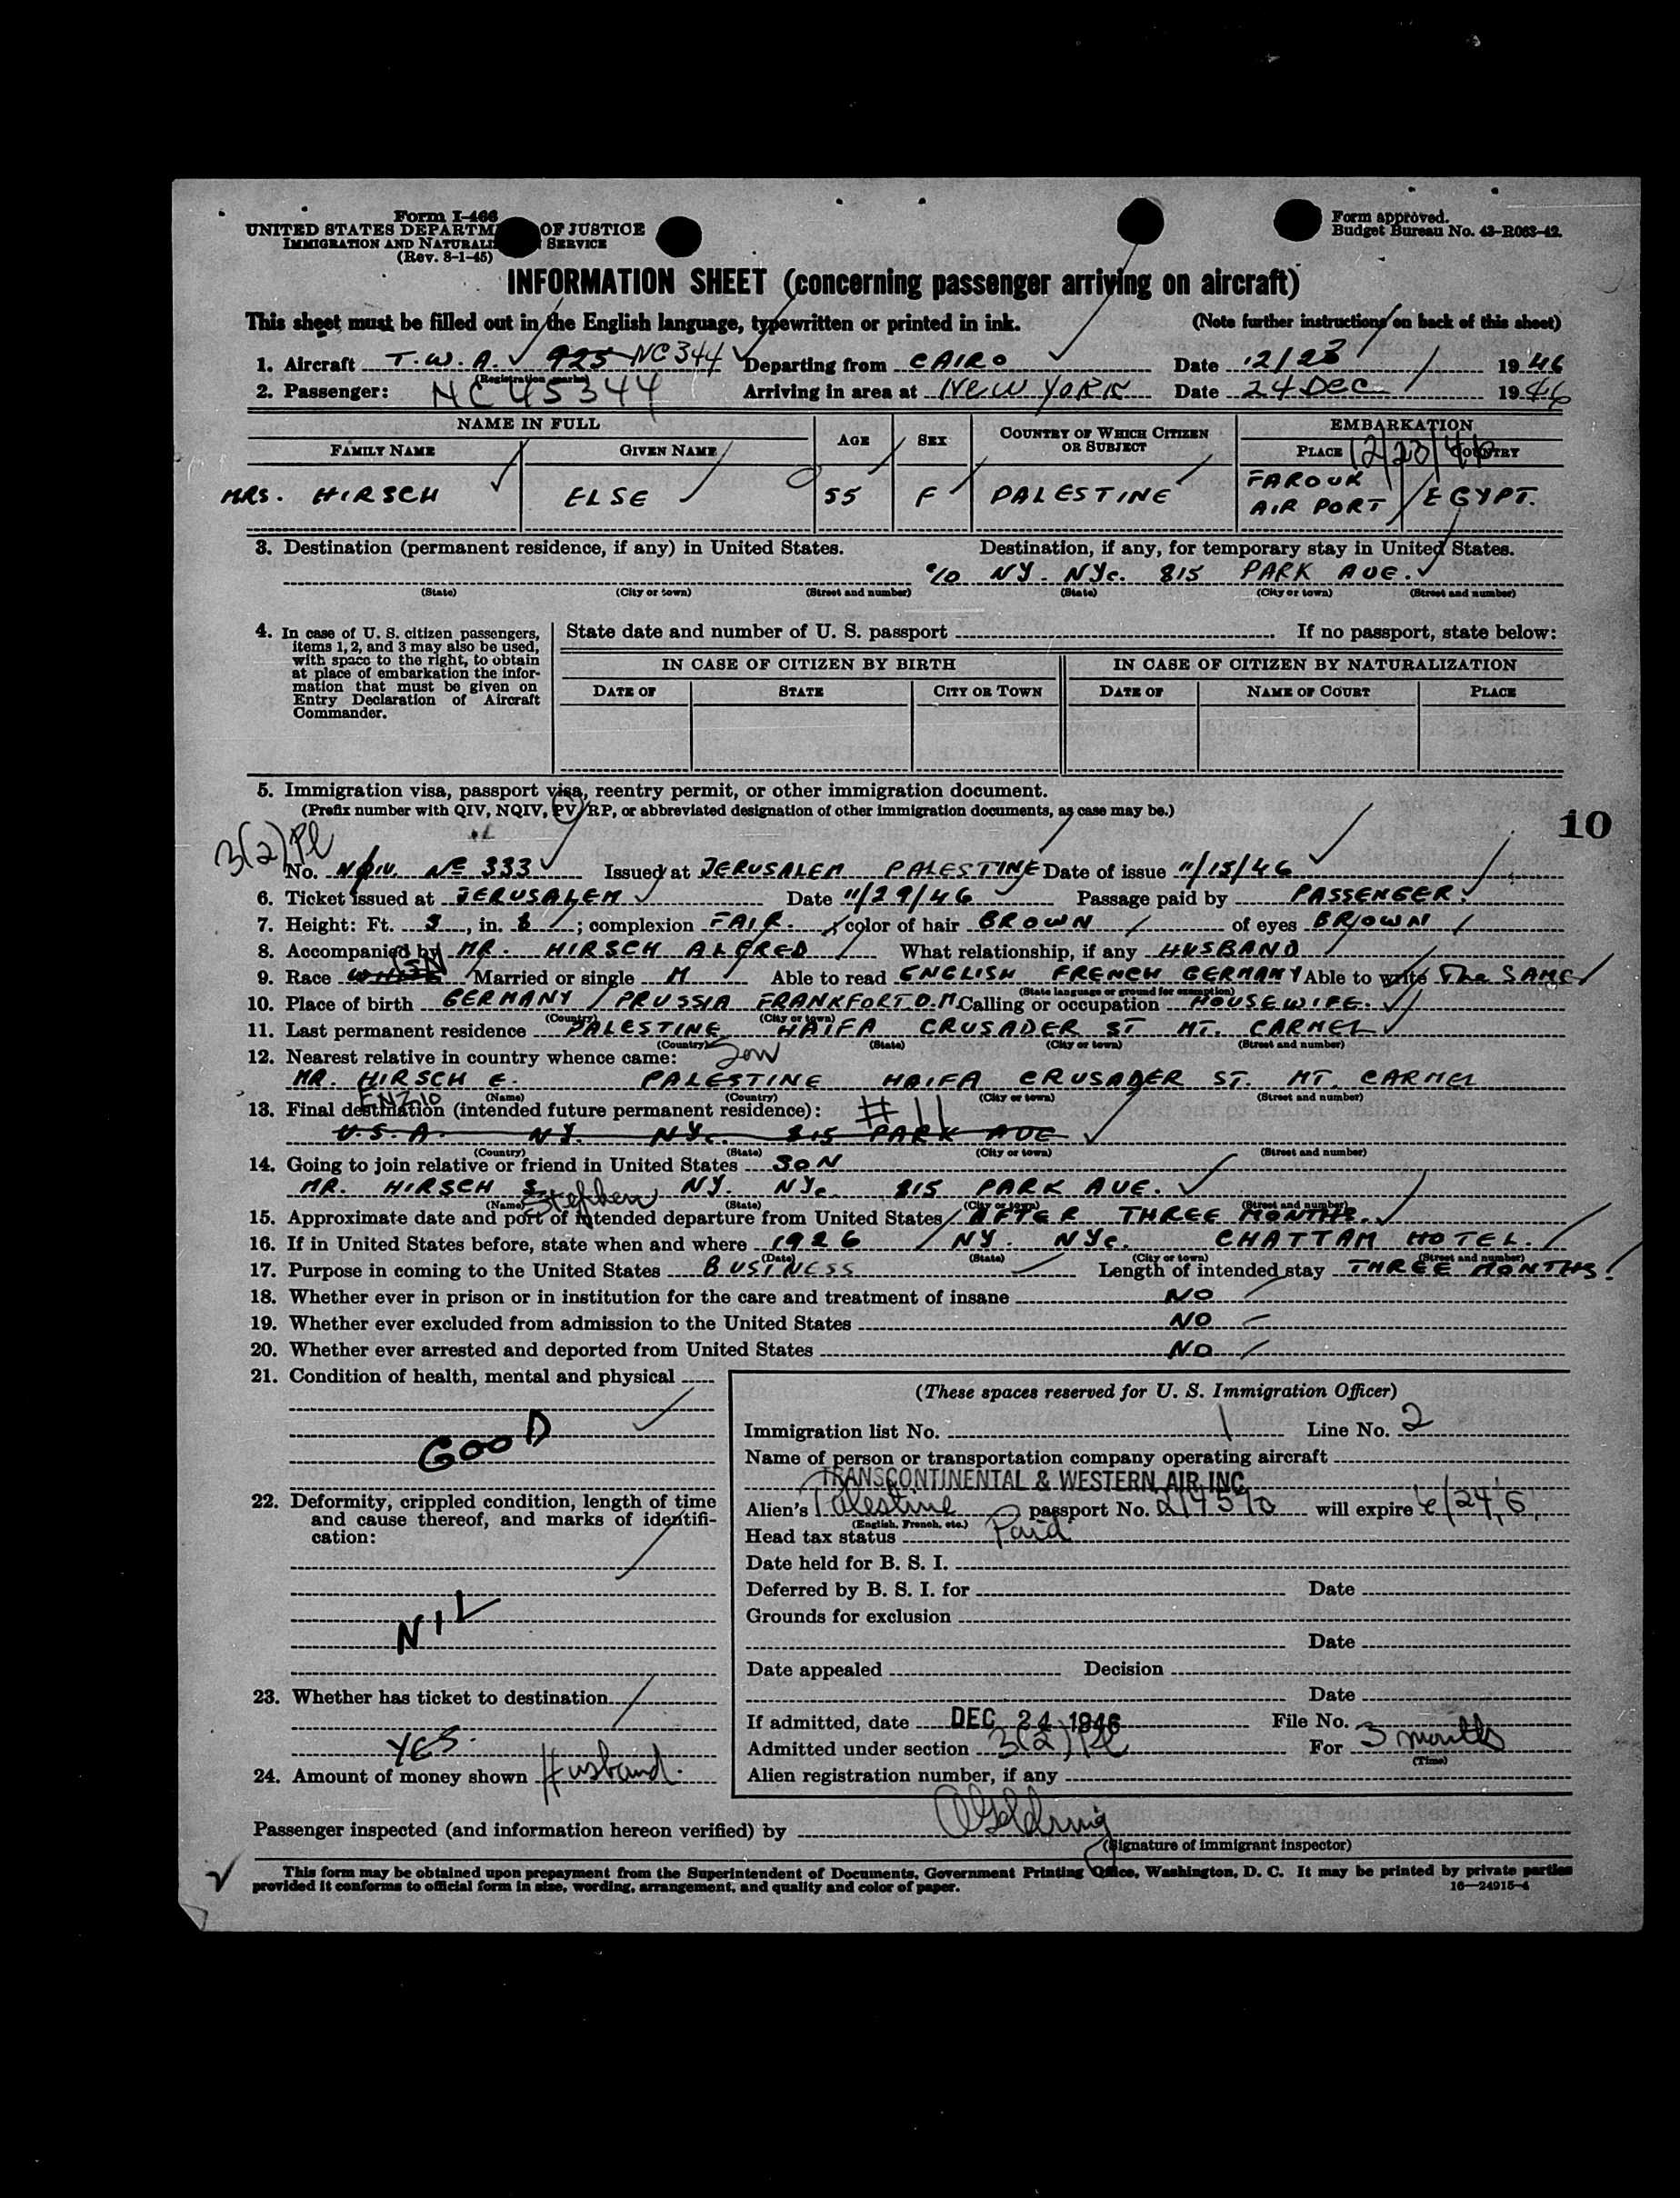 Form I-466
UNITED STATES DEPARTM OF JUSTICE
IMMIGRATION AND NATURALI SERVICE
(Rev. 8-1-45)
Form approved.
Budget Bureau No. 43-R063-42.
INFORMATION SHEET (concerning passenger arriving on aircraft)
This sheet must be filled out in the English language, typewritten or printed in ink. (Note further instructions on back of this sheet)
1. Aircraft T.W.A. 925 NC344 Departing from CAIRO Date 12/23 1946
(Registration marks)
2. Passenger: NC45344 Arriving in area at NEW YORK Date 24 DEC 1946
NAME IN FULL AGE SEX COUNTRY OF WHICH CITIZEN OR SUBJECT EMBARKATION
FAMILY NAME GIVEN NAME PLACE 12/23/46 COUNTRY
MRS. HIRSCH ELSE 55 F PALESTINE FAROUK AIR PORT EGYPT.
3. Destination (permanent residence, if any) in United States. Destination, if any, for temporary stay in United States.
c/o NY. NYc. 815 PARK AUE.
(State) (City or town) (Street and number) (State) (City or town) (Street and number)
4. In case of U. S. citizen passengers, items 1, 2, and 3 may also be used, with space to the right, to obtain at place of embarkation the information that must be given on Entry Declaration of Aircraft Commander.
State date and number of U. S. passport If no passport, state below:
IN CASE OF CITIZEN BY BIRTH IN CASE OF CITIZEN BY NATURALIZATION
DATE OF STATE CITY OR TOWN DATE OF NAME OF COURT PLACE
5. Immigration visa, passport visa, reentry permit, or other immigration document.
(Prefix number with QIV, NQIV, PV, RP, or abbreviated designation of other immigration documents, as case may be.)
10
3(2) Pl
No. No 333 Issued at JERUSALEM PALESTINE Date of issue 11/15/46
6. Ticket issued at JERUSALEM Date 11/29/46 Passage paid by PASSENGER.
7. Height: Ft. 5, in. 8; complexion FAIR. color of hair BROWN of eyes BROWN
8. Accompanied by MR. HIRSCH ALFRED What relationship, if any HUSBAND
9. Race Married or single M Able to read ENGLISH FRENCH GERMANY Able to write The SAME
(State language or ground for exemption)
10. Place of birth GERMANY / PRUSSIA FRANKFORT O.M. Calling or occupation HOUSEWIFE.
(Country) (City or town)
11. Last permanent residence PALESTINE HAIFA CRUSADER ST MT. CARMEL
(Country) (State) (City or town) (Street and number)
12. Nearest relative in country whence came: Son
MR. HIRSCH E. PALESTINE HAIFA CRUSADER ST. MT. CARMEL
ENZIO (Name) (Country) (City or town) (Street and number)
13. Final destination (intended future permanent residence): #11
U.S.A. NY. NYc. 815 PARK AUE
(Country) (State) (City or town) (Street and number)
14. Going to join relative or friend in United States SON
MR. HIRSCH S. Stephen NY. NYc 815 PARK AUE.
(Name) (State) (City or town) (Street and number)
15. Approximate date and port of intended departure from United States AFTER THREE MONTHS.
16. If in United States before, state when and where 1926 NY. NYc. CHATTAM HOTEL.
(Date) (State) (City or town) (Street and number)
17. Purpose in coming to the United States BUSINESS Length of intended stay THREE MONTHS!
18. Whether ever in prison or in institution for the care and treatment of insane NO
19. Whether ever excluded from admission to the United States NO
20. Whether ever arrested and deported from United States NO
21. Condition of health, mental and physical
GOOD
22. Deformity, crippled condition, length of time and cause thereof, and marks of identification:
NIL
23. Whether has ticket to destination
YES.
24. Amount of money shown Husband.
(These spaces reserved for U. S. Immigration Officer)
Immigration list No. 1 Line No. 2
Name of person or transportation company operating aircraft
TRANSCONTINENTAL & WESTERN AIR, INC.
Alien's Palestine passport No. 214590 will expire
(English, French, etc.)
Head tax status Paid
Date held for B. S. I.
Deferred by B. S. I. for Date
Grounds for exclusion
Date
Date appealed Decision
Date
If admitted, date DEC 24 1946 File No.
Admitted under section 3(2) Pl For 3 months
(Time)
Alien registration number, if any
Passenger inspected (and information hereon verified) by
(Signature of immigrant inspector)
This form may be obtained upon prepayment from the Superintendent of Documents, Government Printing Office, Washington, D. C. It may be printed by private parties
provided it conforms to official form in size, wording, arrangement, and quality and color of paper. 16—24915-4